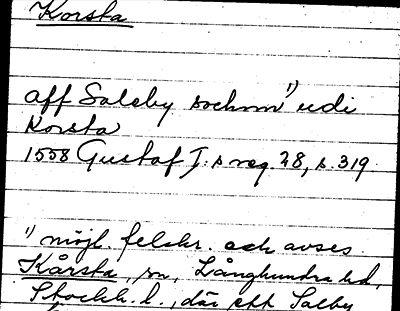 Korsta
aff Saleby sochnn¹⁾ udi
Korsta
1558 Gustaf I:s reg. 28, s. 319
¹⁾ möjl. felskr. och avses
Kårsta, sn, Långhundra hd,
Stockh. l., där ett Salby